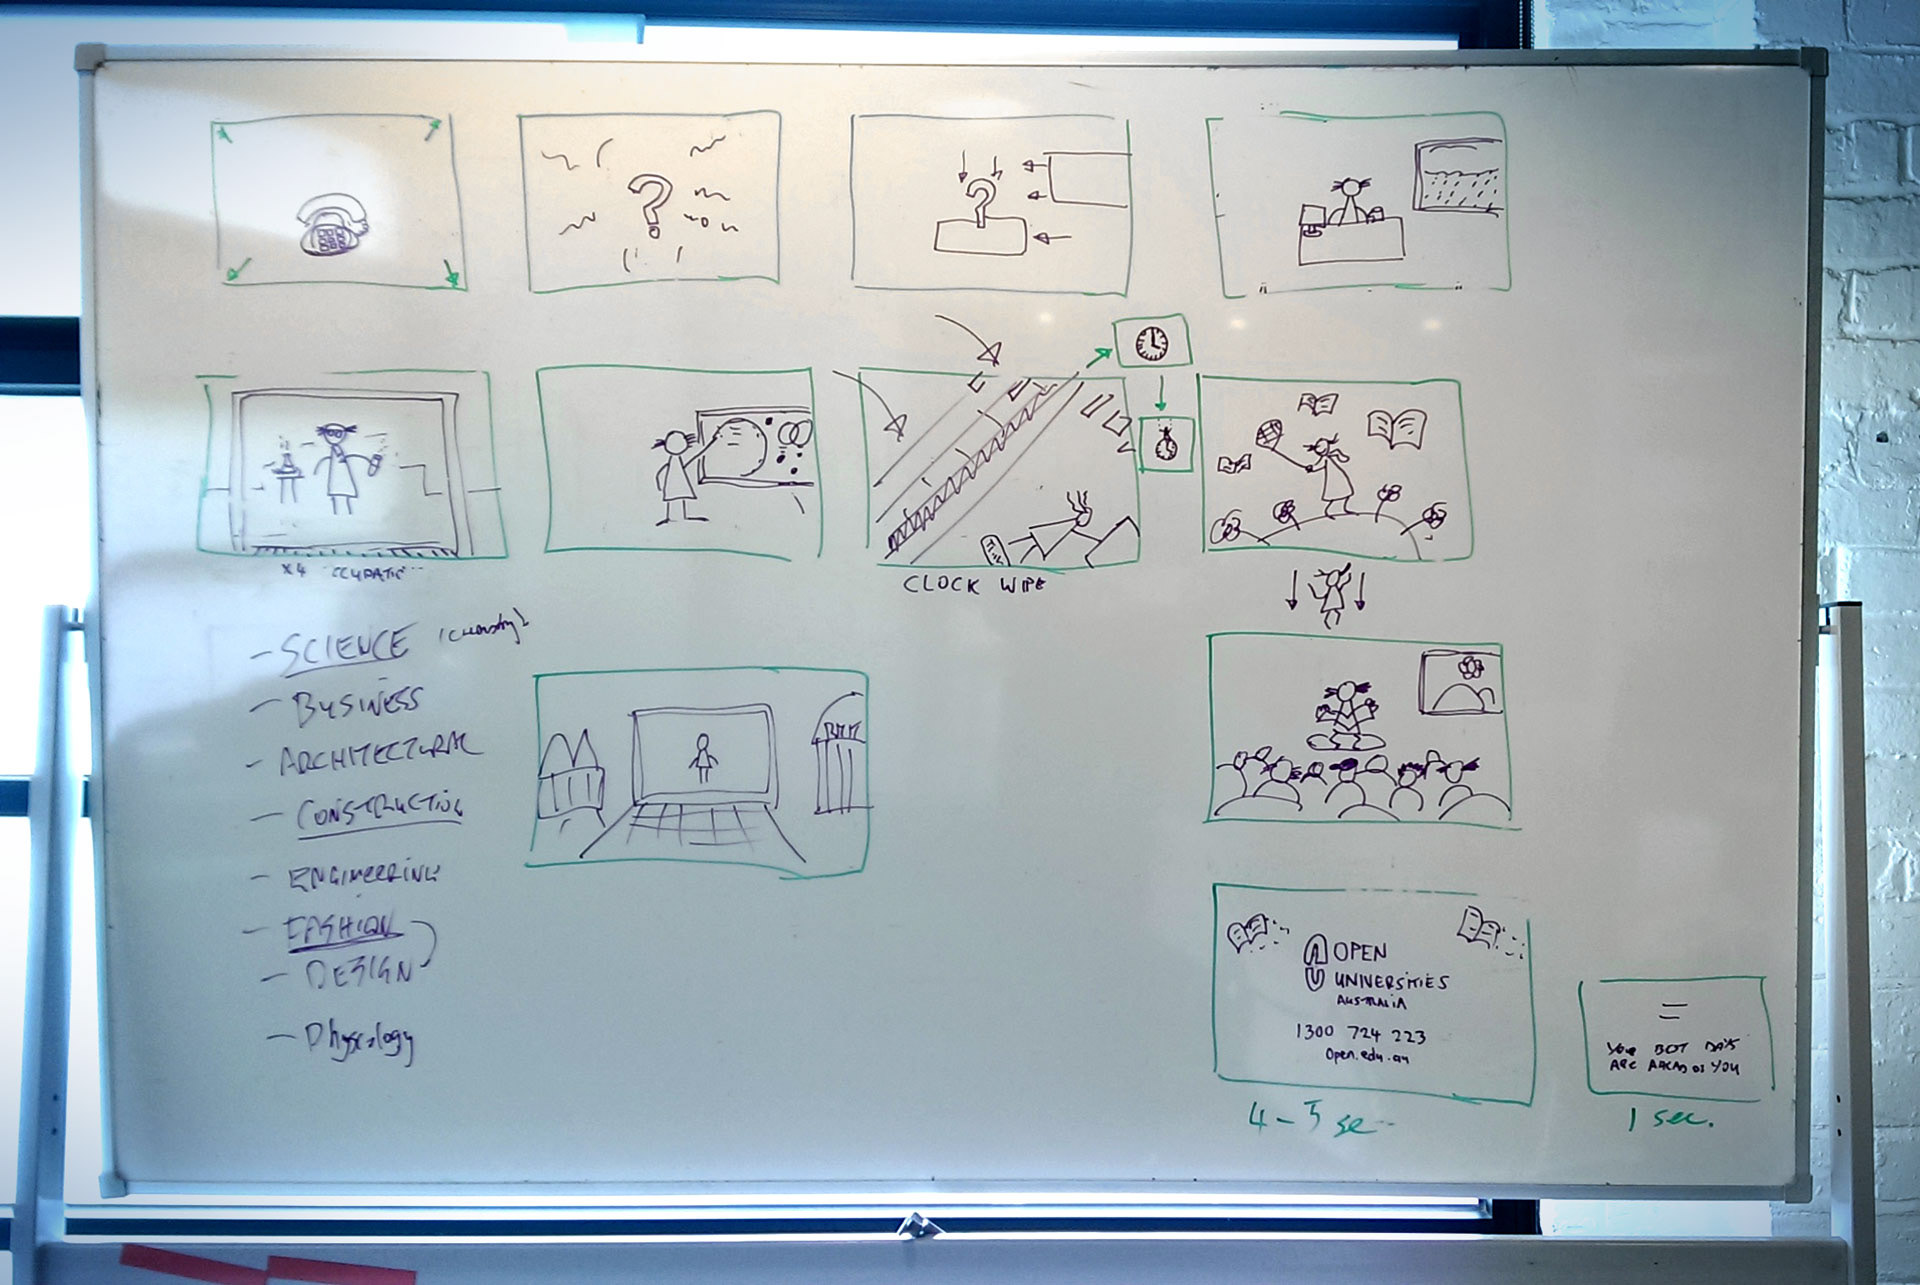 ?
?
CLOCK WIPE
x4
- SCIENCE (Chemistry)
- BUSINESS
- ARCHITECTURAL
- CONSTRUCTION
- ENGINEERING
- FASHION
- DESIGN
- Physcology
OPEN
UNIVERSITIES
AUSTRALIA
1300 724 223
Open.edu.au
4-5 se
YOUR BEST DAYS
ARE AHEAD OF YOU
1 sec.